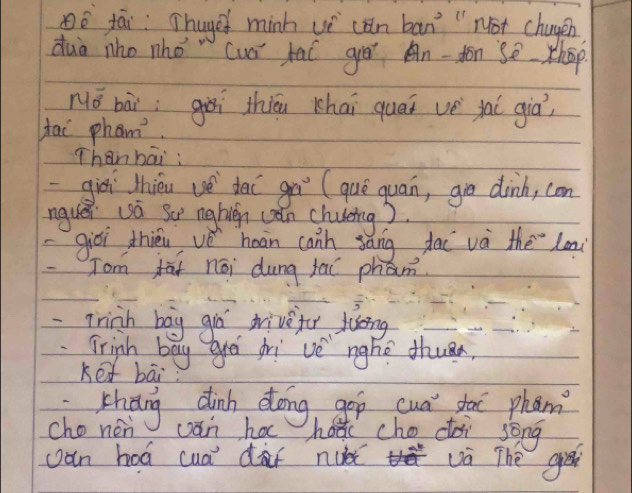 Đề tài: Thuyết minh về văn bản "Một chuyện
đùa nho nhỏ" của tác giả An-tôn Sê-khốp.
Mở bài: giới thiệu khái quát về tác giả,
tác phẩm.
Thân bài:
- giới thiệu về tác giả (quê quán, gia đình, con
người và sự nghiệp văn chương).
- giới thiệu về hoàn cảnh sáng tác và thể loại
- Tóm tắt nội dung tác phẩm.
- Trình bày giá trị về tư tưởng
- Trình bày giá trị về nghệ thuật.
Kết bài:
- Khẳng định đóng góp của tác phẩm
cho nền văn học hoặc cho đời sống
văn hoá của đất nước và Thế giới